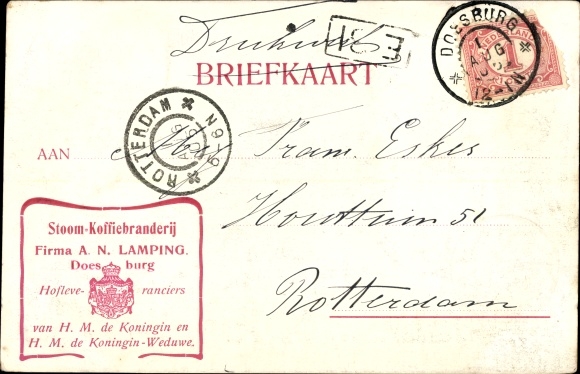 Drukwerk
BRIEFKAART
DOESBURG
1
AUG
12-1N
NEDERLAND
1
ROTTERDAM
6-9N
AAN
Fram. Eskes
Houttuin 51
Rotterdam
Stoom-Koffiebranderij
Firma A. N. LAMPING.
Does burg
Hofleve- ranciers
van H. M. de Koningin en
H. M. de Koningin-Weduwe.